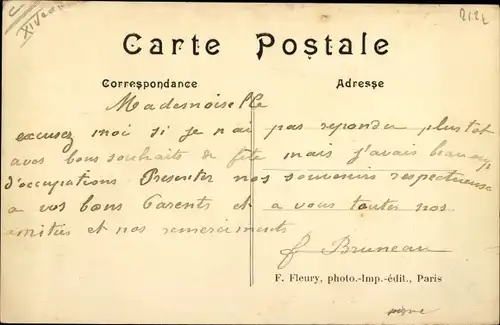 XIV
2121
Carte Postale
Correspondance
Adresse
Mademoiselle
excusez moi si je n ai pas repondu plustot
a vos bons souhaits de fête mais j'avais beaucoup
d'occupations. Presenter nos souvenirs respectueuse
a vos bons Parents et a vous toutes nos
amities et nos remerciments
f Bruneau
F. Fleury, photo.-Imp.-édit., Paris